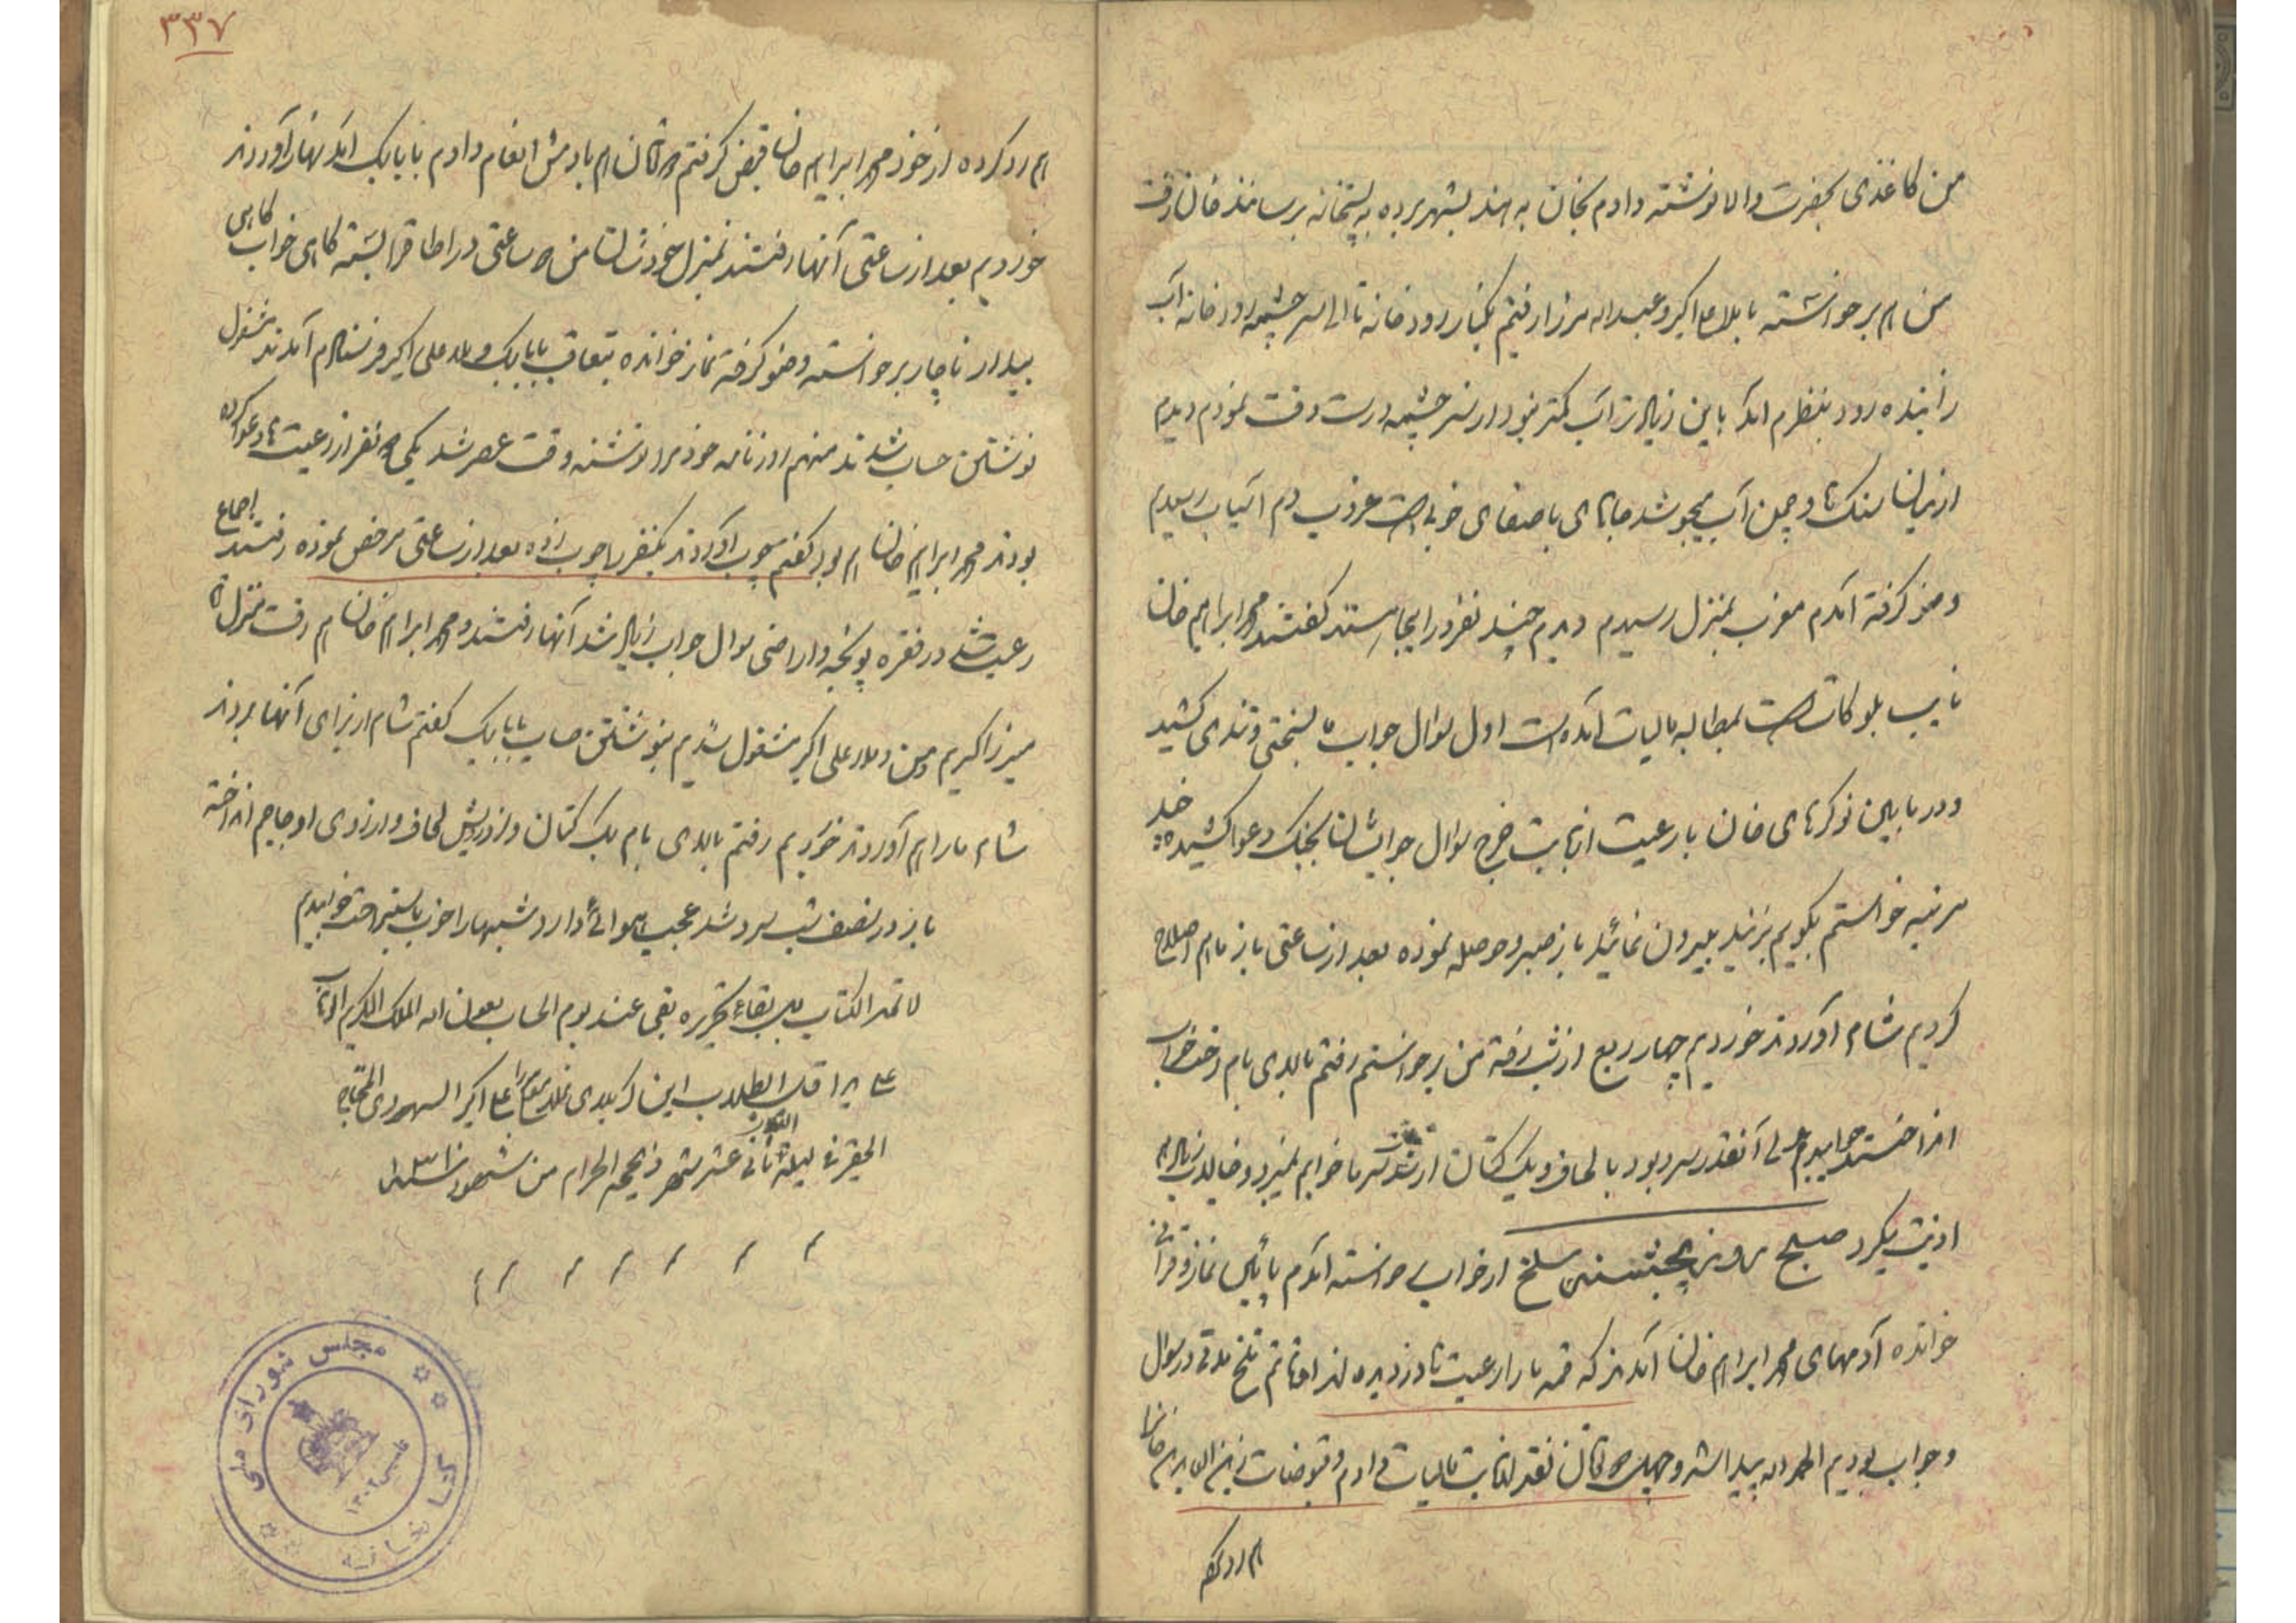 من کاغذی بحضرت والا نوشته دادم بخان به اهند بشهر برده به پستخانه برسانند خان رفت
من ام برخواسته با ملا علی اکبر و عبداله میرزا رفتیم بکنار رودخانه تا الی سر چشمه رودخانه آب
زاینده رود بنظرم آمد باین زیادتر آب کمتر بود از سر چشمه درست دقت نمودم دیدم
از میان سنک ها و چمن آب میجوشد جاهای باصفای خوبی است غروب دم آسیاب رسیدم
وضو کرفته آمدم مغرب بمنزل رسیدم دیدم چند نفر در اینجا هستند کفتند محمد ابراهیم خان
نایب بلوکات است بمطالبه مالیات آمده است اول سوال جواب ما بسختی و تندی کشید
و در مابین نوکرهای خان با رعیت از بابت خرج سوال جوابشان بجنک و دعوا کشیده چند
مرتبه خواستم بکویم بزنید بیرون نمائید باز صبر و حوصله نموده بعد از ساعتی باز باهم اصلاح
کردیم شام آوردند خوردیم چهار ربع از شب رفته من برخواستم رفتم بالای بام رختخواب
انداختند خوابیدم ولی آنقدر سرد بود با لحاف و یک کتان از شدت سرما خوابم نمیبرد و خیالات زیاد هم
اذیت میکرد صبح روز پنجشنبه سلخ از خواب برخواسته آمدم پائین نماز و قرآنی
خوانده آدمهای محمد ابراهیم خان آمدند که قمه ما را رعیت ها دزدیده اند اوقاتم تلخ مدتی در سوال
و جواب بودیم الحمد اله پیدا شد و تومان نقد از بابت مالیات دادم و قبوضات
هم رد کرده
۳۳۷
هم رد کرده از خود محمد ابراهیم خان قبض کرفتم تومان هم بآدمش انعام دادم با بابا بک آمد نهار آوردند
خوردیم بعد از ساعتی آنها رفتند بمنزل خودشان من هم ساعتی در اطاق را بسته کاهی خواب کاهی
بیدار ناچار برخواسته وضو کرفته نماز خوانده بتعاقب بابا بک و ملا علی اکبر فرستادم آمدند مشغول
نوشتن حساب شدند منهم روزنامه خود را نوشته وقت عصر شد یکی دو نفر از رعیت ها دعوا کرده
بودند محمد ابراهیم خان هم بود کفتم چوب آوردند یکنفر را چوب زده بعد از ساعتی مرخص نموده رفتند اجماع
رعیت شد در فقره یونجه و اراضی سوال جواب زیاد شد آنها رفتند و محمد ابراهیم خان هم رفت منزل
میرزا کریم و من و ملا علی اکبر مشغول شدیم بنوشتن حساب بابا بک کفتم شام از برای آنها بردند
شام ما را هم آوردند خوردیم رفتم بالای بام یک کتان و از رویش لحاف و از روی او جاجم انداخته
باز در نصف شب سرد شد عجب هوائی دارد شبها را خوب باستراحت خوابیدم
لا تمد الکتاب بقاء تحریره یبقی عند یوم الحساب بعون اله الملک الکریم الوهاب
علی ید اقل الطلاب ابن کربلائی علی اکبر السهرودی المحتاج
الحقیر فی لیلة الثانی عشر شهر ذیحجه الحرام من شهور
مجلس شورای ملی
کتابخانه
تأسیس ۱۳۰۲